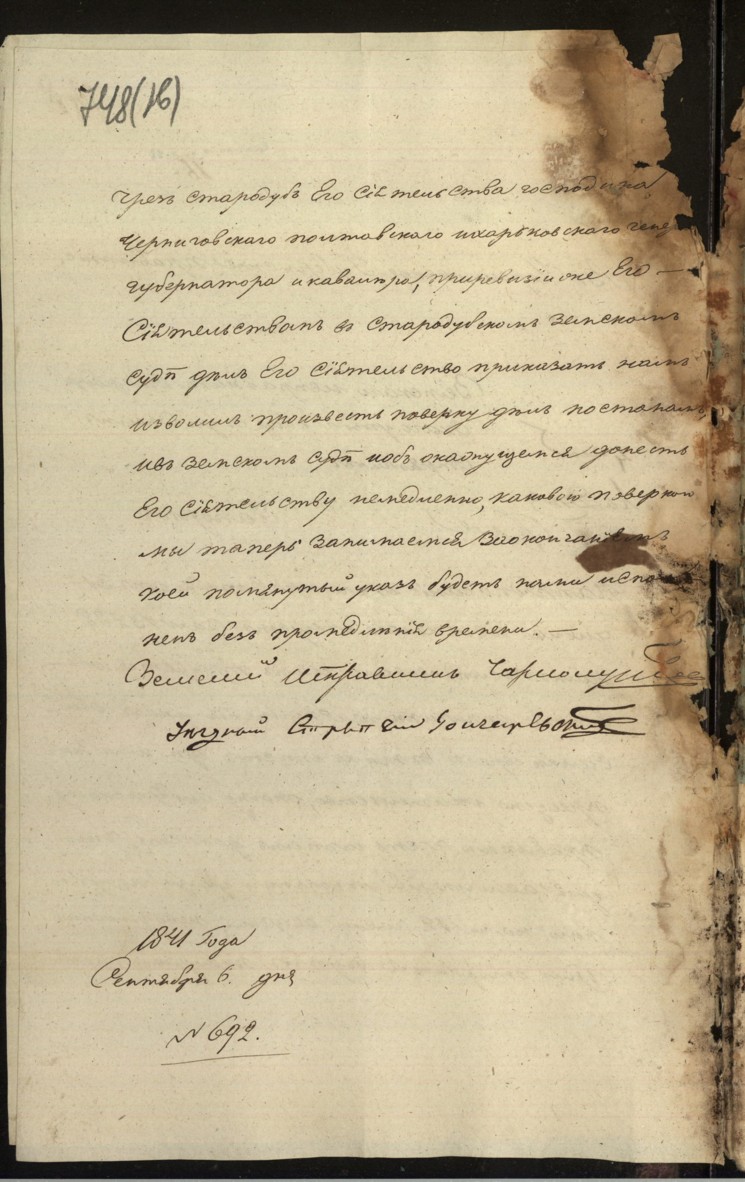 748(16)
чрезъ стародубъ Его Сіятельства господина
Черниговскаго полтавскаго ихарьковскаго гене
губернатора икавалера, приревизіи оне Его —
Сіятельствомъ въ Стародубскомъ Земскомъ
Судѣ дѣлъ Его Сіятельство приказать намъ
изволилъ произвесть поверку дѣлъ
ивъ Земскомъ Судѣ иобъ донесть
Его Сіятельству немедленно, каковою поверкою
мы таперь Занимаемся
коей помянутый указъ будетъ нами испо
ненъ безъ промедлѣнія времени. —
Земскій Исправникъ
Уѣздный Стряпчій
1841 Года
Сентября 6. дня
№ 692.